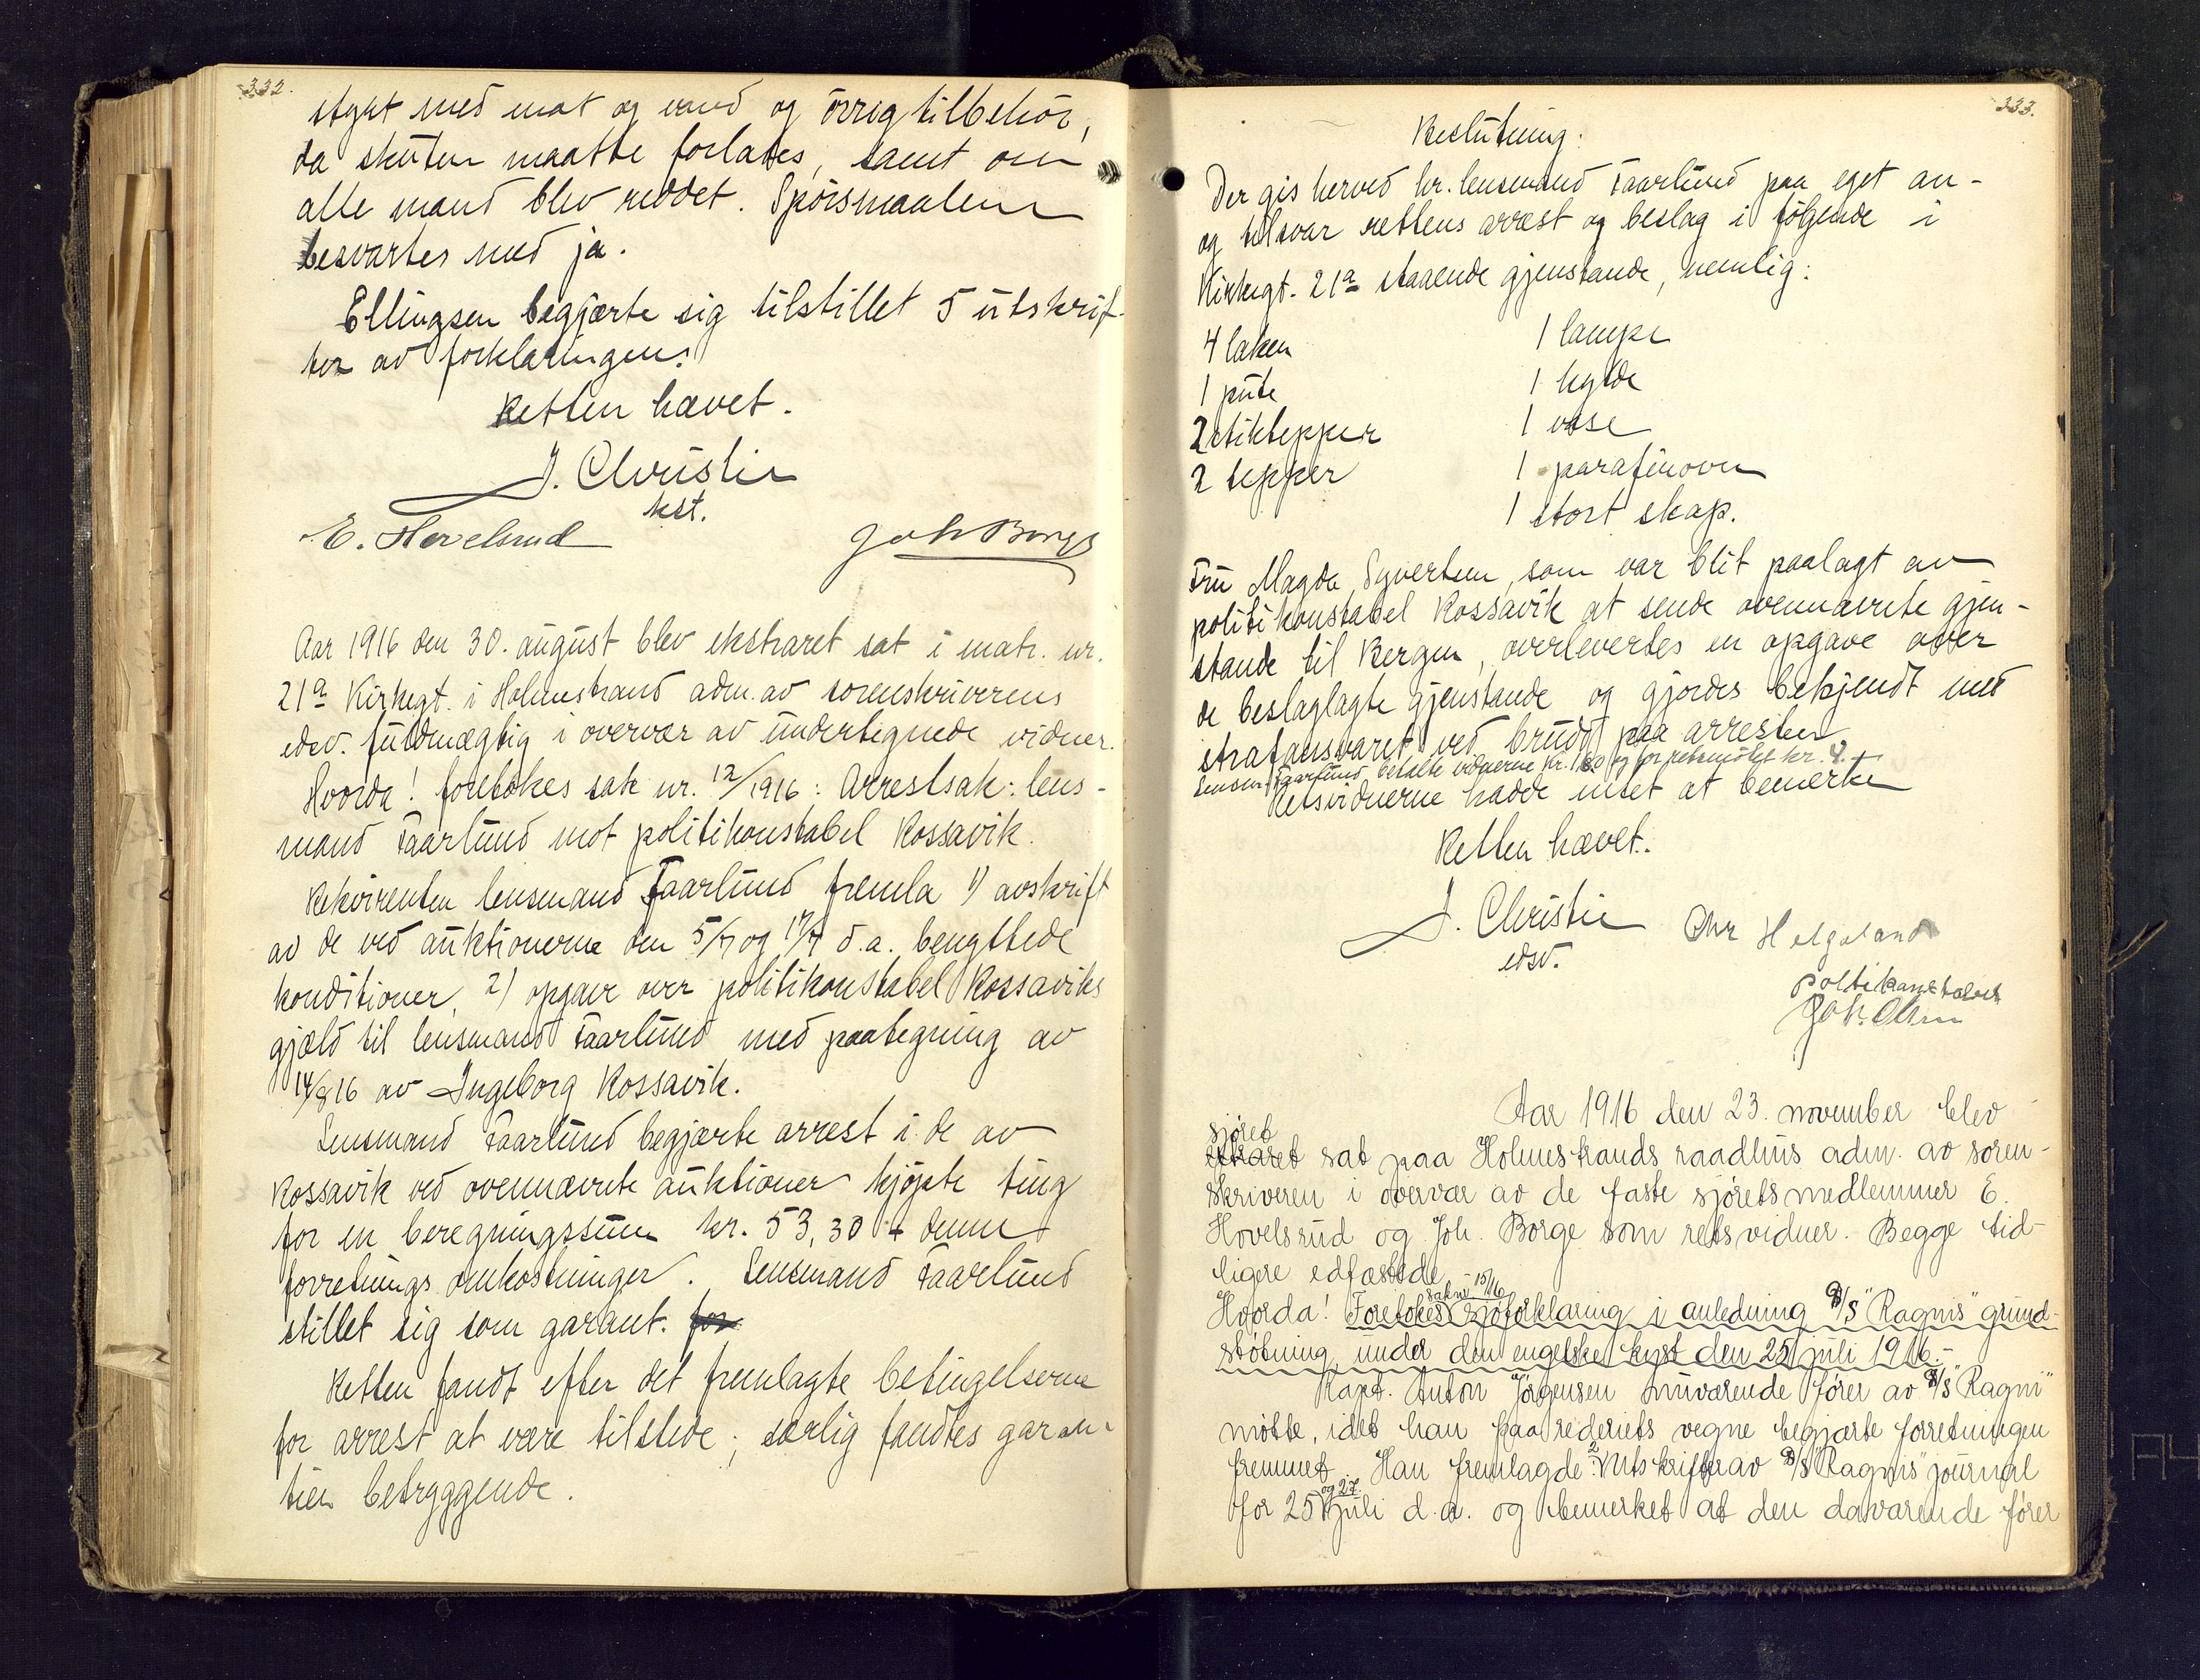 332.
styrt med mat og vand og övrig tilbehör,
da skuten maatte forlates, samt om
alle mand blev reddet. Spörsmaalene
besvartes med ja.
Ellingsen begjærte sig tilstillet 5 utskrif-
ter av forklaringen.
Retten hævet.
J. Christie
kst.
E. Hovelsrud Joh Borge
Aar 1916 den 30. august blev ekstraret sat i matr. nr.
21a Kirkegt. i Holmestrand adm. av sorenskriverens
edsv. fuldmægtig i overvær av undertegnede vidner.
Hvorda! foretokes sak nr. 12/1916: Arrestsak: lens-
mand Faarlund mot politikonstabel Kossavik.
Rekvirenten lensmand Faarlund fremla 1) avskrift
av de ved auktionerne den 5/7 og 17/7 d.a. benyttede
konditioner, 2) opgave over politikonstabel Kossaviks
gjæld til lensmand Faarlund med paategning av
14/8 16 av Ingeborg Kossavik.
Lensmand Faarlund begjærte arrest i de av
Kossavik ved ovennævnte auktioner kjøpte ting
for en beregningssum kr. 53,30 + denne
forretnings omkostninger. Lensmand Faarlund
stillet sig som garant. for
Retten fandt efter det fremlagte betingelserne
for arrest at være tilstede; særlig fandtes garan-
tien betryggende.
333.
Beslutning:
Der gis herved hr. lensmand Faarlund paa eget an-
og tilsvar rettens arrest og beslag i følgende i
Kirkegt. 21a staaende gjenstande, nemlig:
4 laken 1 lampe
1 pute 1 hylde
2 stiktepper 1 vase
2 tepper 1 parafinovn
1 stort skap.
Fru Magda Syvertsen, som var blit paalagt av
politikonstabel Kossavik at sende ovennævnte gjen-
stande til Bergen, overlevertes en opgave over
de beslaglagte gjenstande og gjordes bekjendt med
strafansvaret ved brudd paa arresten
Lensm. Faarlund betalte vidnerne kr. 1.60 og for retsmötet kr. 4.
Retsvidnerne hadde intet at bemerke
Retten hævet.
J. Christie
edsv.
Chr Helgeland
politikonstabel
Joh. Olsen
Aar 1916 den 23. november blev
sjöret
ekstraret sat paa Holmestrands raadhus adm. av soren-
skriveren i overvær av de faste sjöretsmedlemmer E.
Hovelsrud og Joh. Borge som retsvidner. Begge tid-
ligere edfæstede.
sak nr. 15/16
Hvorda! Foretokes sjöforklaring i anledning D/S "Ragnis" grund-
stötning under den engelske kyst den 25 juli 1916.-
Kapt. Anton Jörgensen nuværende förer av D/S "Ragni"
mötte, idet han paa rederiets vegne begjærte forretningen
fremmet. Han fremlagde 2 utskrifter av D/S "Ragnis" journal
og 27.
for 25 juli d.a. og bemerket at den daværende förer